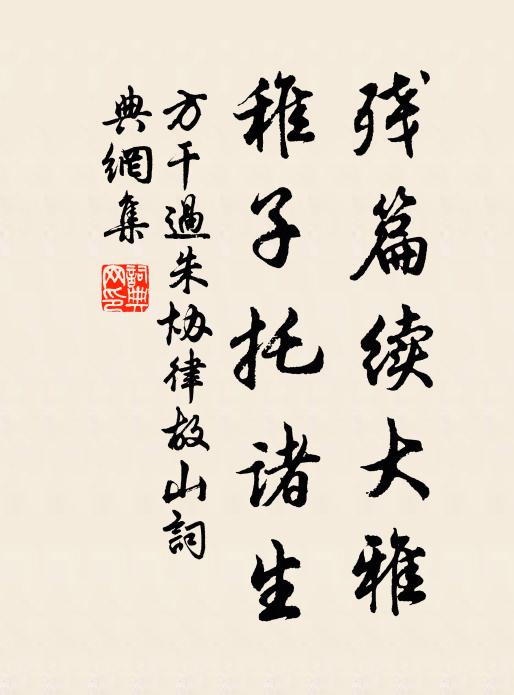 残篇续大雅
稚子托诸生
方干過朱协律故山詞
典網集
詞典網印